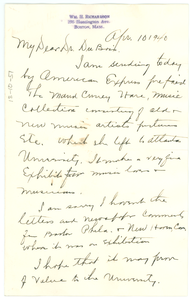 WM. H. RICHARDSON
Boston, Mass.
Apr 10 1940
My Dear Dr Du Bois
I am sending today
by American Express prepaid
The Maud Cuney Hare, Music
Collection consisting of old &
new music artists pictures
Etc. which she left to Atlanta
University. It makes a very fine
Exhibit for music lovers &
musicians.
I am sorry I loaned the
letters and newspaper comments
from Phila. & New Haven, Conn
when it was on Exhibition
I hope that it may prove
of value to the University.